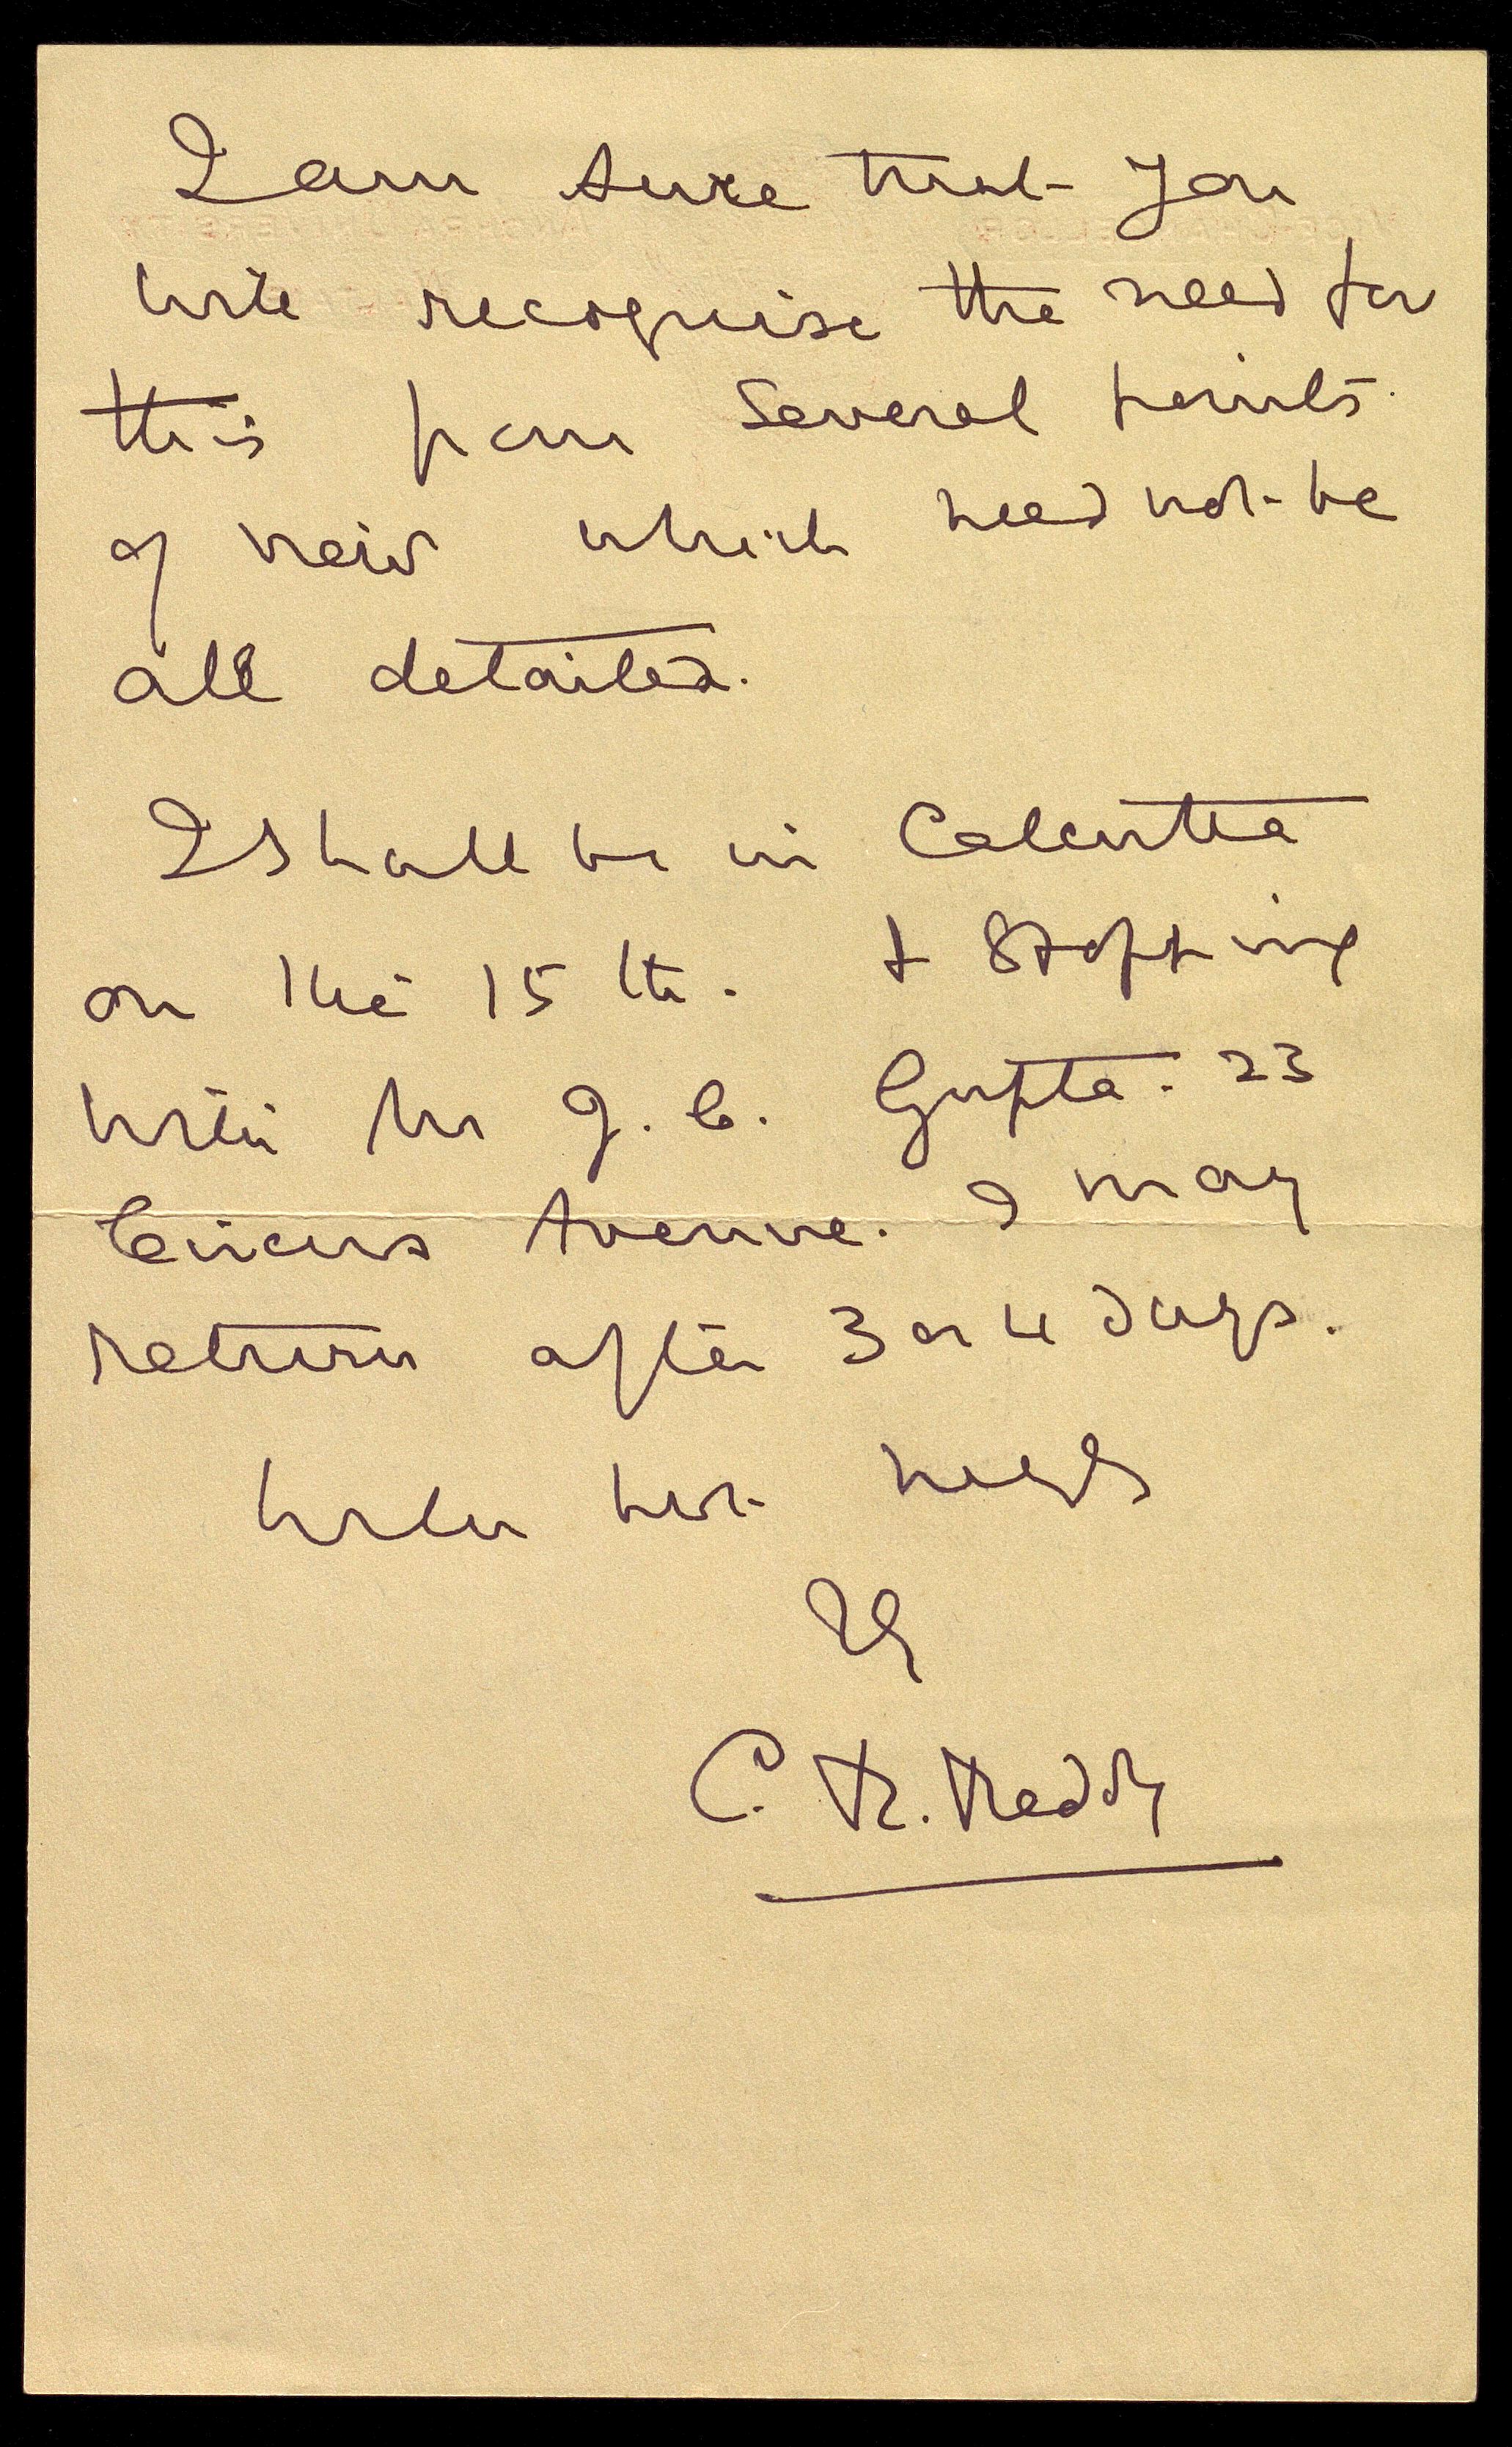 I am sure that you
will recognise the need for
this from several points
of view which need not be
all detailed.
I shall be in Calcutta
on the 15th. & stopping
with Mr J. C. Gupta. 23
Circus Avenue. I may
return after 3 or 4 days.
With best regards
Ys
C. R. Reddy